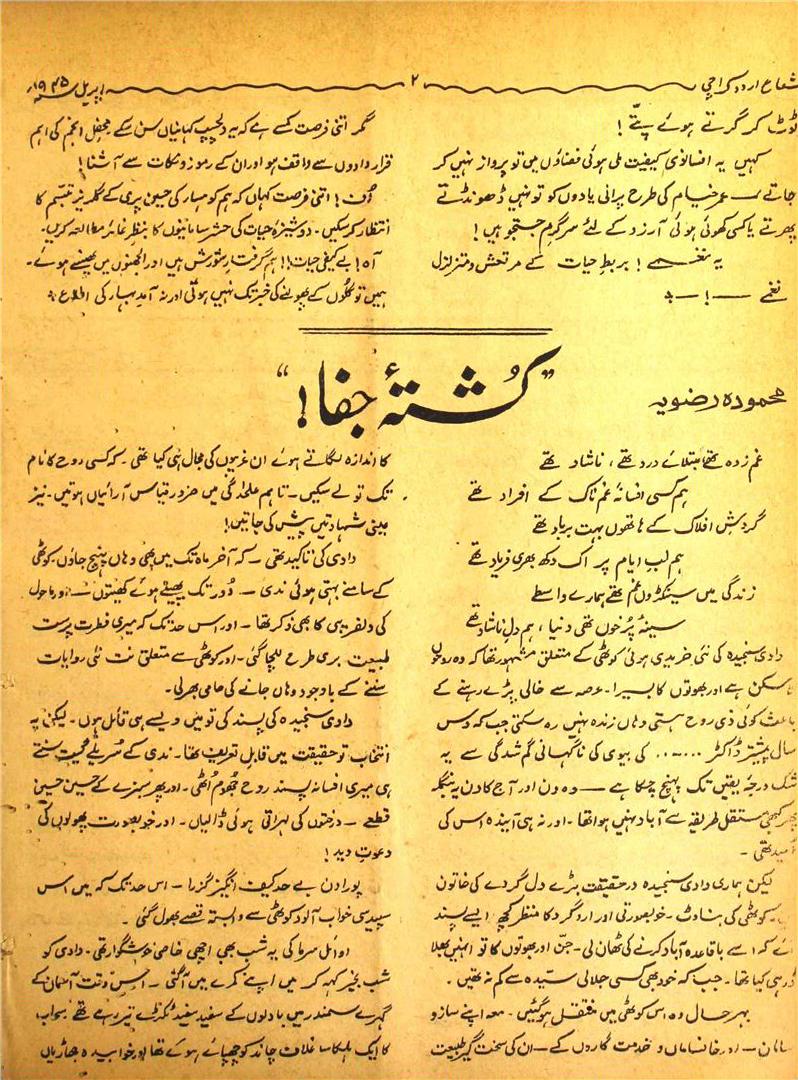 شعاع اردو کراچی ۲ اپریل ۱۹۴۵ء
ٹوٹ کر گرتے ہوئے پتّے!
کہیں یہ افسانوی کیفیت ملی ہوئی فضاؤں میں تو پرواز نہیں کر
جاتے — عمر خیام کی طرح پرانی یادوں کو تو نہیں ڈھونڈتے
پھرتے یا کسی کھوئی ہوئی آرزد کے لئے سرگرمِ جستجو ہیں!
یہ نغمے! بربطِ حیات کے مرتعش و متزلزل
نغمے —!—
مگر اتنی فرصت کسے ہے کہ یہ دلچسپ کہانیاں سن سکے محفلِ انجم کی اہم
قراردادوں سے واقف ہو اور ان کے رموز و نکات سے آشنا!
اُف! اتنی فرصت کہاں کہ ہم کو بہار کی حسین پری کے گلریز تبسّم کا
انتظار کر سکیں۔ دوشیزۂ حیات کی حشر سامانیوں کا بنظرِ غائر مطالعہ کریں۔
آہ! بے کیفیِ حیات!! ہم گرفتارِ شورش ہیں اور الجھنوں میں پھنسے ہوئے۔
ہمیں تو گلوں کے پھولنے کی خبر تک نہیں ہوتی اور نہ آمدِ بہار کی اطلاع
"کُشتۂ جفا!"
محمودہ رضویہ
غم زدہ تھے مبتلائے درد تھے، ناشاد تھے
ہم کسی افسانۂ غم ناک کے افراد تھے
گردشِ افلاک کے ہاتھوں بہت برباد تھے
ہم لبِ ایام پر اک دکھ بھری فریاد تھے
زندگی میں سینکڑوں غم تھے ہمارے واسطے
سینۂ پُرخوں تھی دنیا، ہم دلِ ناشاد تھے
دادی سنجیدہ کی نئی خریدی ہوئی کوٹھی کے متعلق مشہور تھا کہ وہ روحوں
کا مسکن ہے اور بھوتوں کا بسیرا۔ عرصہ سے خالی پڑے رہنے کے
باعث کوئی ذی روح ہستی وہاں زندہ نہیں رہ سکتی جب کہ دس
سال پیشتر ڈاکٹر ...... کی بیوی کی ناگہانی گم شدگی سے یہ
شک درجۂ یقیں تک پہنچ چکا ہے — وہ دن اور آج کا دن یہ بنگلہ
پھر کبھی مستقل طریقہ سے آباد نہیں ہوا تھا۔ اور نہ ہی آیندہ اس کی
اُمید تھی۔
لیکن ہماری دادی سنجیدہ درحقیقت بڑے دل گردے کی خاتون
کوٹھی کی بناوٹ۔ خوبصورتی اور اردگرد کا منظر کچھ ایسے پسند
آئے کہ اسے باقاعدہ آباد کرنے کی ٹھان لی۔ جن اور بھوتوں کا تو انہیں بھلا
ڈر ہی کیا تھا۔ جب کہ خود بھی کسی جلالی سیّدہ سے کم نہ تھیں۔
بہرحال وہ اس کوٹھی میں منتقل ہو گئیں۔ معہ اپنے ساز و
سامان۔ اور خانساماں و خدمت گاروں کے۔ ان کی سخت گیر طبیعت
کا اندازہ لگاتے ہوئے ان غریبوں کی مجال ہی کیا تھی۔ کہ کسی روح کا نام
تک تو لے سکیں۔ تاہم علٰحدگی میں ضرور قیاس آرائیاں ہوتیں۔ نیز
عینی شہادتیں پیش کی جاتیں!
دادی کی تاکید تھی۔ کہ آخر ماہ تک میں بھی وہاں پہنچ جاؤں۔ کوٹھی
کے سامنے بہتی ہوئی ندی — دُور تک پھیلے ہوئے کھیتوں — اور ماحول
کی دلفریبی کا بھی ذکر تھا۔ اور اس حد تک کہ میری فطرت پرست
طبیعت بری طرح للچا گئی۔ اور کوٹھی سے متعلق نت نئی روایات
سننے کے باوجود وہاں جانے کی حامی بھر لی۔
دادی سنجیدہ کی پسند کی تو میں ویسے ہی قائل ہوں۔ لیکن یہ
انتخاب تو حقیقت میں قابلِ تعریف تھا۔ ندی کے سُریلے گیت سنتے
ہی میری افسانہ پسند روح جھوم اُٹھی۔ اور پھر سبزے کے حسین حسین
قطعے — درختوں کی لہراتی ہوئی ڈالیاں۔ اور خوبصورت پھولوں کی
دعوتِ دید!
پورا دن بے حد کیف انگیز گزرا — اس حد تک کہ میں اس
سپیدسی خواب آلود کوٹھی سے وابستہ قصے بھول گئی۔
اوائل سرما کی یہ شب بھی اچھی خاصی خوشگوار تھی۔ دادی کو
شب بخیر کہہ کر میں اپنے کمرے میں آ گئی۔ اس وقت آسمان کے
گہرے سمندر میں بادلوں کے سفید سفید ٹکڑے تیر رہے تھے سحاب
کا ایک ہلکا سا غلاف چاند کو چھپائے ہوئے تھا اور خوابیدہ جھاڑیاں